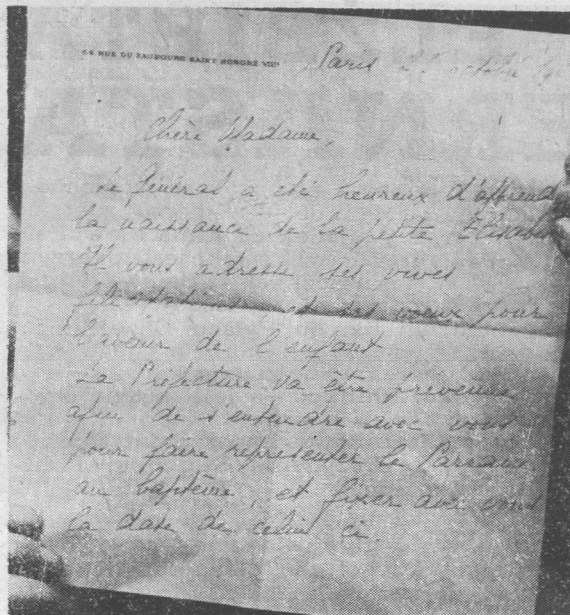 RUE DU FAUBOURG SAINT HONORE VIIIe Paris octobre
Chère Madame,
Le Général a été heureux d'apprend
la naissance de la petite Elisabe
Il vous adresse ses vives
félicitations et ses voeux pour
l'avenir de l'enfant.
La Préfecture va être prévenue
afin de s'entendre avec vous
pour faire représenter le Parrain
au baptême, et fixer avec vous
la date de celui ci.